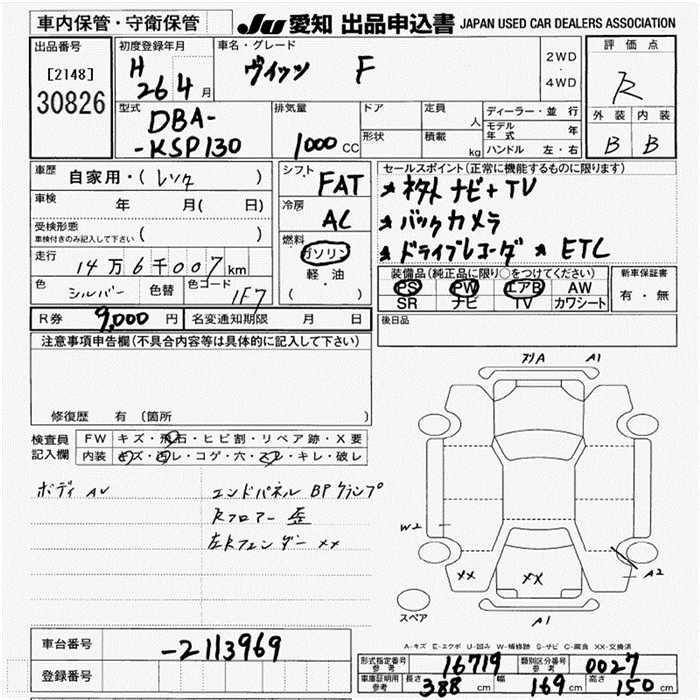 車内保管・守衛保管
JU 愛知 出品申込書 JAPAN USED CAR DEALERS ASSOCIATION
出品番号
[2148]
30826
初度登録年月
H 26 4 月
車名・グレード
ヴィッツ F
2WD
・
4WD
評価点
R
外装 内装
B B
型式
DBA-
-KSP130
排気量
1000 CC
ドア
形状
定員 人
積載 kg
ディーラー・並行
モデル年式 年
ハンドル 左・右
車歴 自家用・( レンタ )
車検 年 月( 日)
受検形態
車検付きのみ記入して下さい ( )
走行 14万6千007 km
色 シルバー 色替 色コード 1F7
シフト FAT
冷房 AC
燃料
ガソリン
軽・油
( )
セールスポイント(正常に機能するものに限ります)
★ ナビ+TV
★ バックカメラ
★ ドライブレコーダ ★ ETC
装備品(純正品に限り○をつけてください)
PS PW エアB AW
SR ナビ TV カワシート
新車保証書
有・無
R券 9,000 円 名変通知期限 月 日
後日品
注意事項申告欄(不具合内容等は具体的に記入して下さい)
修復歴 有(箇所
検査員
記入欄
FW キズ・飛石・ヒビ割・リペア跡・X要
内装 キズ・汚レ・コゲ・穴・スレ・キレ・破レ
ボディ AV
エンドパネル BPクランプ
Rフロアー 歪
左Rフェンダー ××
A1
W2
××
××
A2
A1
スペア
A-キズ E-エクボ U-凹み W-補修跡 S-サビ C-腐食 XX-交換済
車台番号 -2113969
登録番号
形式指定番号
参考
16719
類別区分番号
参考
0027
車庫証明用
参考
長さ 388 cm 幅 169 cm 高さ 150 cm